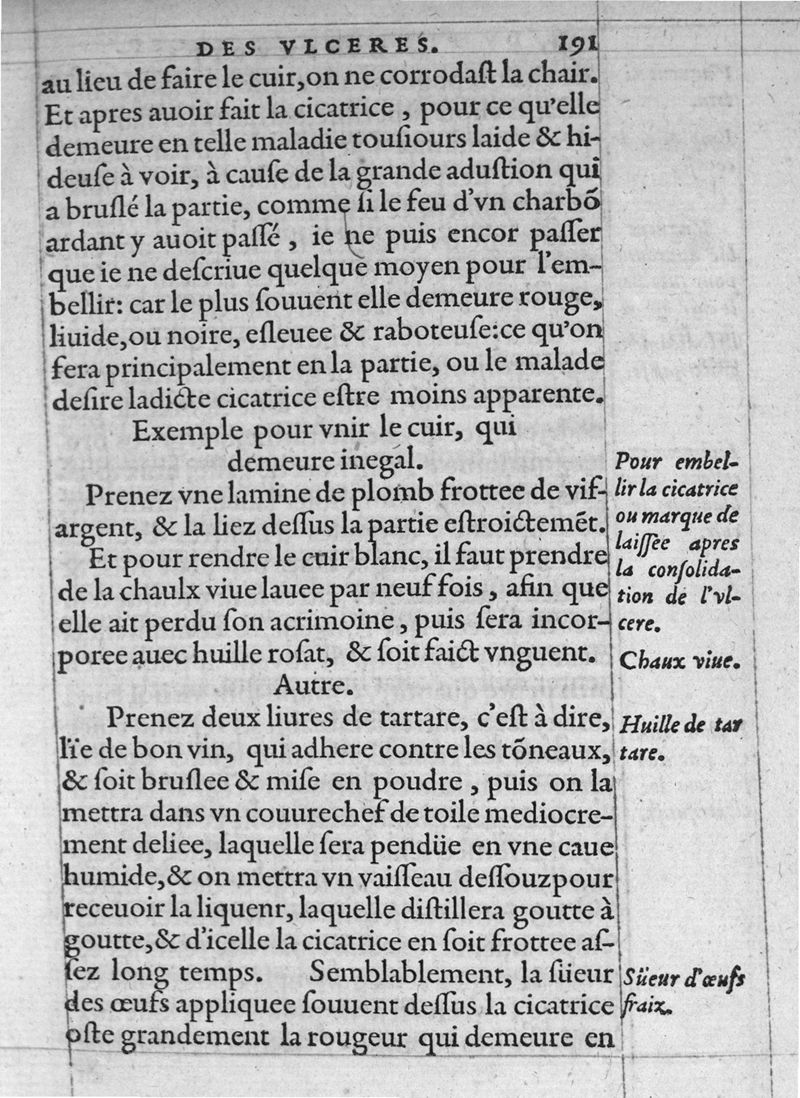 DES VLCERES. 191
au lieu de faire le cuir, on ne corrodaſt la chair.
Et apres auoir fait la cicatrice , pour ce qu'elle
demeure en telle maladie touſiours laide & hi-
deuſe à voir, à cauſe de la grande aduſtion qui
a bruſlé la partie, comme ſi le feu d'vn charbõ
ardant y auoit paſſé , ie ne puis encor paſſer
que ie ne deſcriue quelque moyen pour l'em-
bellir: car le plus ſouuent elle demeure rouge,
liuide, ou noire, eſleuee & raboteuſe: ce qu'on
fera principalement en la partie, ou le malade
deſire ladicte cicatrice eſtre moins apparente.
Exemple pour vnir le cuir, qui
demeure inegal.
Prenez vne lamine de plomb frottee de vif-
argent, & la liez deſſus la partie eſtroictemẽt.
Et pour rendre le cuir blanc, il faut prendre
de la chaulx viue lauee par neuf fois , afin que
elle ait perdu ſon acrimoine , puis ſera incor-
poree auec huille roſat, & ſoit faict vnguent.
Autre.
Prenez deux liures de tartare, c'eſt à dire,
lïe de bon vin, qui adhere contre les tõneaux,
& ſoit bruſlee & miſe en poudre , puis on la
mettra dans vn couurechef de toile mediocre-
ment deliee, laquelle ſera pendüe en vne caue
humide, & on mettra vn vaiſſeau deſſouz pour
receuoir la liquenr, laquelle diſtillera goutte à
goutte, & d'icelle la cicatrice en ſoit frottee aſ-
ſez long temps. Semblablement, la ſüeur
des œufs appliquee ſouuent deſſus la cicatrice
oſte grandement la rougeur qui demeure en
Pour embel-
lir la cicatrice
ou marque de
laiſſee apres
la conſolida-
tion de l'vl-
cere.
Chaux viue.
Huille de tar
tare.
Süeur d'œufs
fraiz.